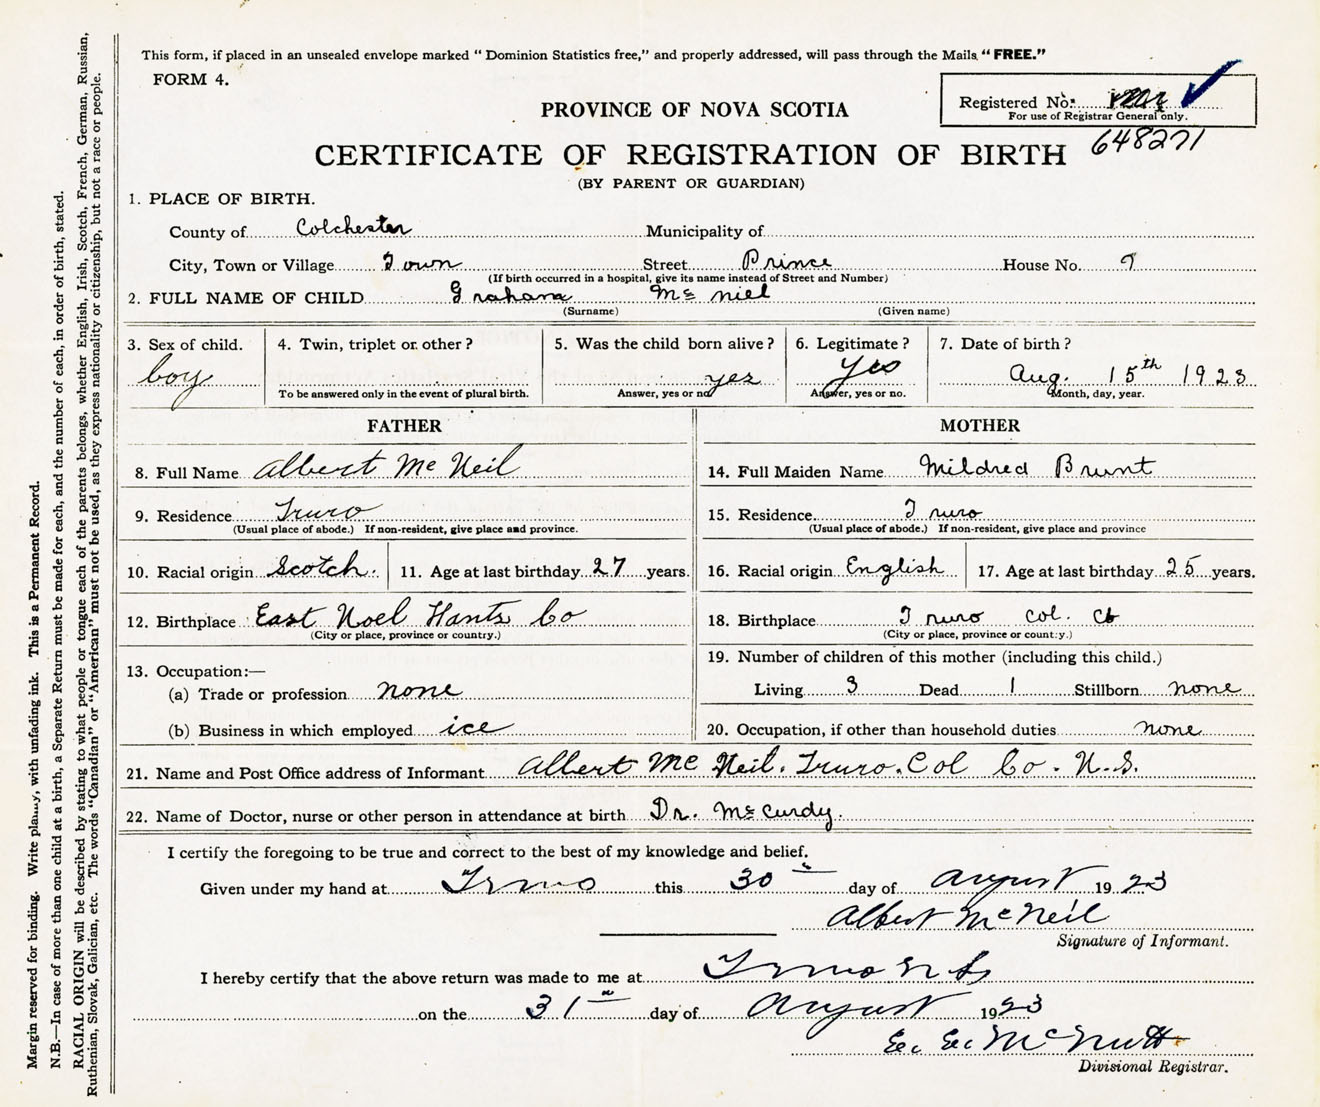 This form, if placed in an unsealed envelope marked “ Dominion Statistics free,” and properly addressed, will pass through the Mails “ FREE.”
FORM 4.
Registered No.
For use of Registrar General only.
648271
PROVINCE OF NOVA SCOTIA
CERTIFICATE OF REGISTRATION OF BIRTH
(BY PARENT OR GUARDIAN)
1. PLACE OF BIRTH.
County of Colchester Municipality of
City, Town or Village Town Street Prince House No. 9
(If birth occurred in a hospital, give its name instead of Street and Number)
2. FULL NAME OF CHILD Graham Mc niel
(Surname) (Given name)
3. Sex of child. 4. Twin, triplet or other? 5. Was the child born alive? 6. Legitimate? 7. Date of birth?
boy yes Yes Aug. 15th 1923
To be answered only in the event of plural birth. Answer, yes or no Answer, yes or no. Month, day, year.
FATHER MOTHER
8. Full Name Albert Mc Neil 14. Full Maiden Name Mildred Brunt
9. Residence Truro 15. Residence Truro
(Usual place of abode.) If non-resident, give place and province. (Usual place of abode.) If non-resident, give place and province
10. Racial origin Scotch. 11. Age at last birthday 27 years. 16. Racial origin English 17. Age at last birthday 25 years.
12. Birthplace East Noel Hants Co 18. Birthplace Truro Col. Co
(City or place, province or country.) (City or place, province or country.)
13. Occupation:— 19. Number of children of this mother (including this child.)
(a) Trade or profession none Living 3 Dead 1 Stillborn none
(b) Business in which employed ice 20. Occupation, if other than household duties none
21. Name and Post Office address of Informant Albert Mc Neil. Truro. Col Co. N.S.
22. Name of Doctor, nurse or other person in attendance at birth Dr. Mc Curdy.
I certify the foregoing to be true and correct to the best of my knowledge and belief.
Given under my hand at Truro this 30 day of August 1923
Albert McNeil
Signature of Informant.
I hereby certify that the above return was made to me at Truro N S
on the 31 day of August 1923
McNutt
Divisional Registrar.
Margin reserved for binding. Write plainly, with unfading ink. This is a Permanent Record.
N.B.—In case of more than one child at a birth, a Separate Return must be made for each, and the number of each, in order of birth, stated.
RACIAL ORIGIN will be described by stating to what people or tongue each of the parents belongs, whether English, Irish, Scotch, French, German, Russian,
Ruthenian, Slovak, Galician, etc. The words “Canadian” or “American” must not be used, as they express nationality or citizenship, but not a race or people.